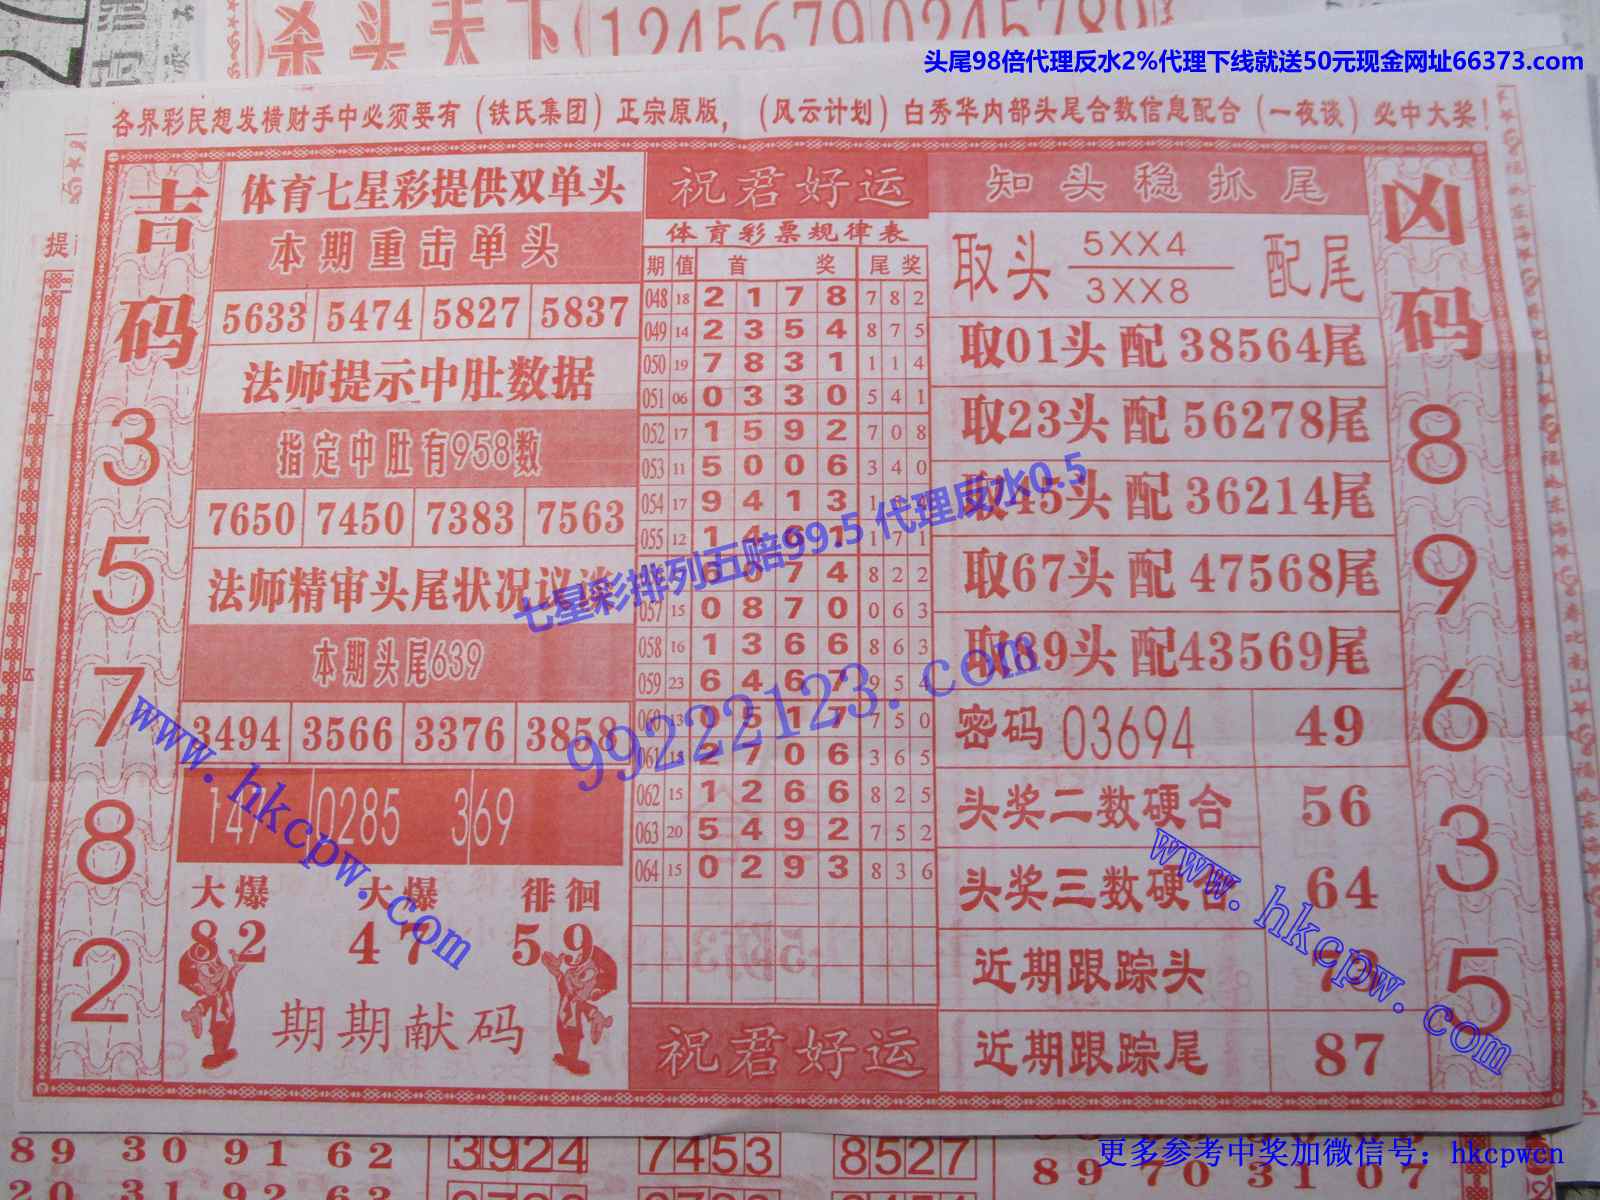 杀头天下 1245679 0245789
头尾98倍代理反水2%代理下线就送50元现金网址66373.com
各界彩民想发横财手中必须要有（铁氏集团）正宗原版，（风云计划）白秀华内部头尾合数信息配合（一夜谈）必中大奖！
吉码
3
5
7
8
2
体育七星彩提供双单头
本期重击单头
5633 5474 5827 5837
法师提示中肚数据
指定中肚有958数
7650 7450 7383 7563
法师精审头尾状况议谈
本期头尾639
3494 3566 3376 3858
147 0285 369
大爆 大爆 徘徊
82 47 59
期期献码
祝君好运
体育彩票规律表
期 值 首 奖 尾 奖
048 18 2 1 7 8 7 8 2
049 14 2 3 5 4 8 7 5
050 19 7 8 3 1 1 1 4
051 06 0 3 3 0 5 4 1
052 17 1 5 9 2 7 0 8
053 11 5 0 0 6 3 4 0
054 17 9 4 1 3 1
055 12 1 4 6 1 1 7 1
6 0 7 4 8 2 2
057 15 0 8 7 0 0 6 3
058 16 1 3 6 6 8 6 3
059 23 6 4 6 7 9 5 4
060 13 0 5 1 7 7 5 0
061 15 2 7 0 6 3 6 5
062 15 1 2 6 6 8 2 5
063 20 5 4 9 2 7 5 2
064 15 0 2 9 3 8 3 6
祝君好运
知头稳抓尾
取头 5XX4 配尾
3XX8
取01头 配 38564尾
取23头 配 56278尾
取45头 配 36214尾
取67头 配 47568尾
取89头 配43569尾
密码 03694 49
头奖二数硬合 56
头奖三数硬合 64
近期跟踪头
近期跟踪尾 87
凶码
8
9
6
3
5
七星彩排列五赔99.5 代理反水0.5
99222123.com
www.hkcpw.com
www.hkcpw.com
89 30 91 62 3924 7453 8527 89 70 31 07
更多参考中奖加微信号：hkcpwcn